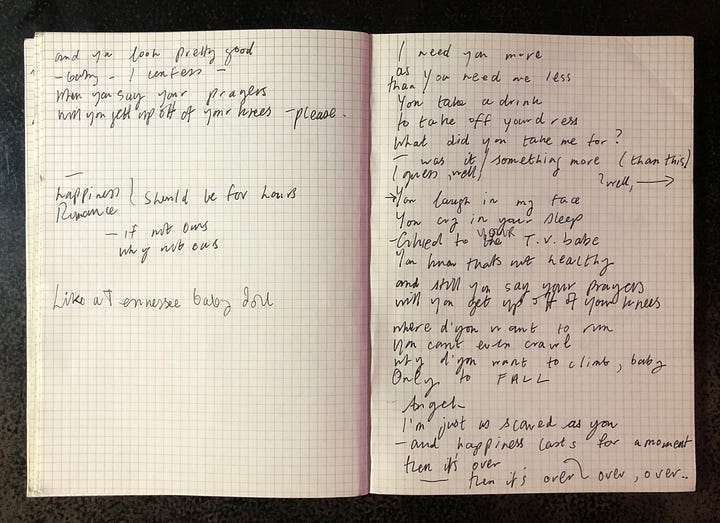 and you look pretty good
- baby - I confess -
When you say your prayers
will you get up off of your knees - please.
—
happiness
Romance
should be for hours
- if not ours
why not ours
Like a Tennessee baby doll
I need you more
as
than you need me less
You take a drink
to take off your dress
What did you take me for?
- was it / something more (than this)
I guess, well,
? well, →
→ You laugh in my face
You cry in your sleep
YOUR
- Glued to the T.V. babe
You know thats not healthy
and still you say your prayers
will you get up off of your knees
where d'you want to run
You cant even crawl
why d'you want to climb, baby
Only to FALL
Angel
I'm just as scared as you
- and happiness lasts for a moment
then it's over
— then it's over over, over..